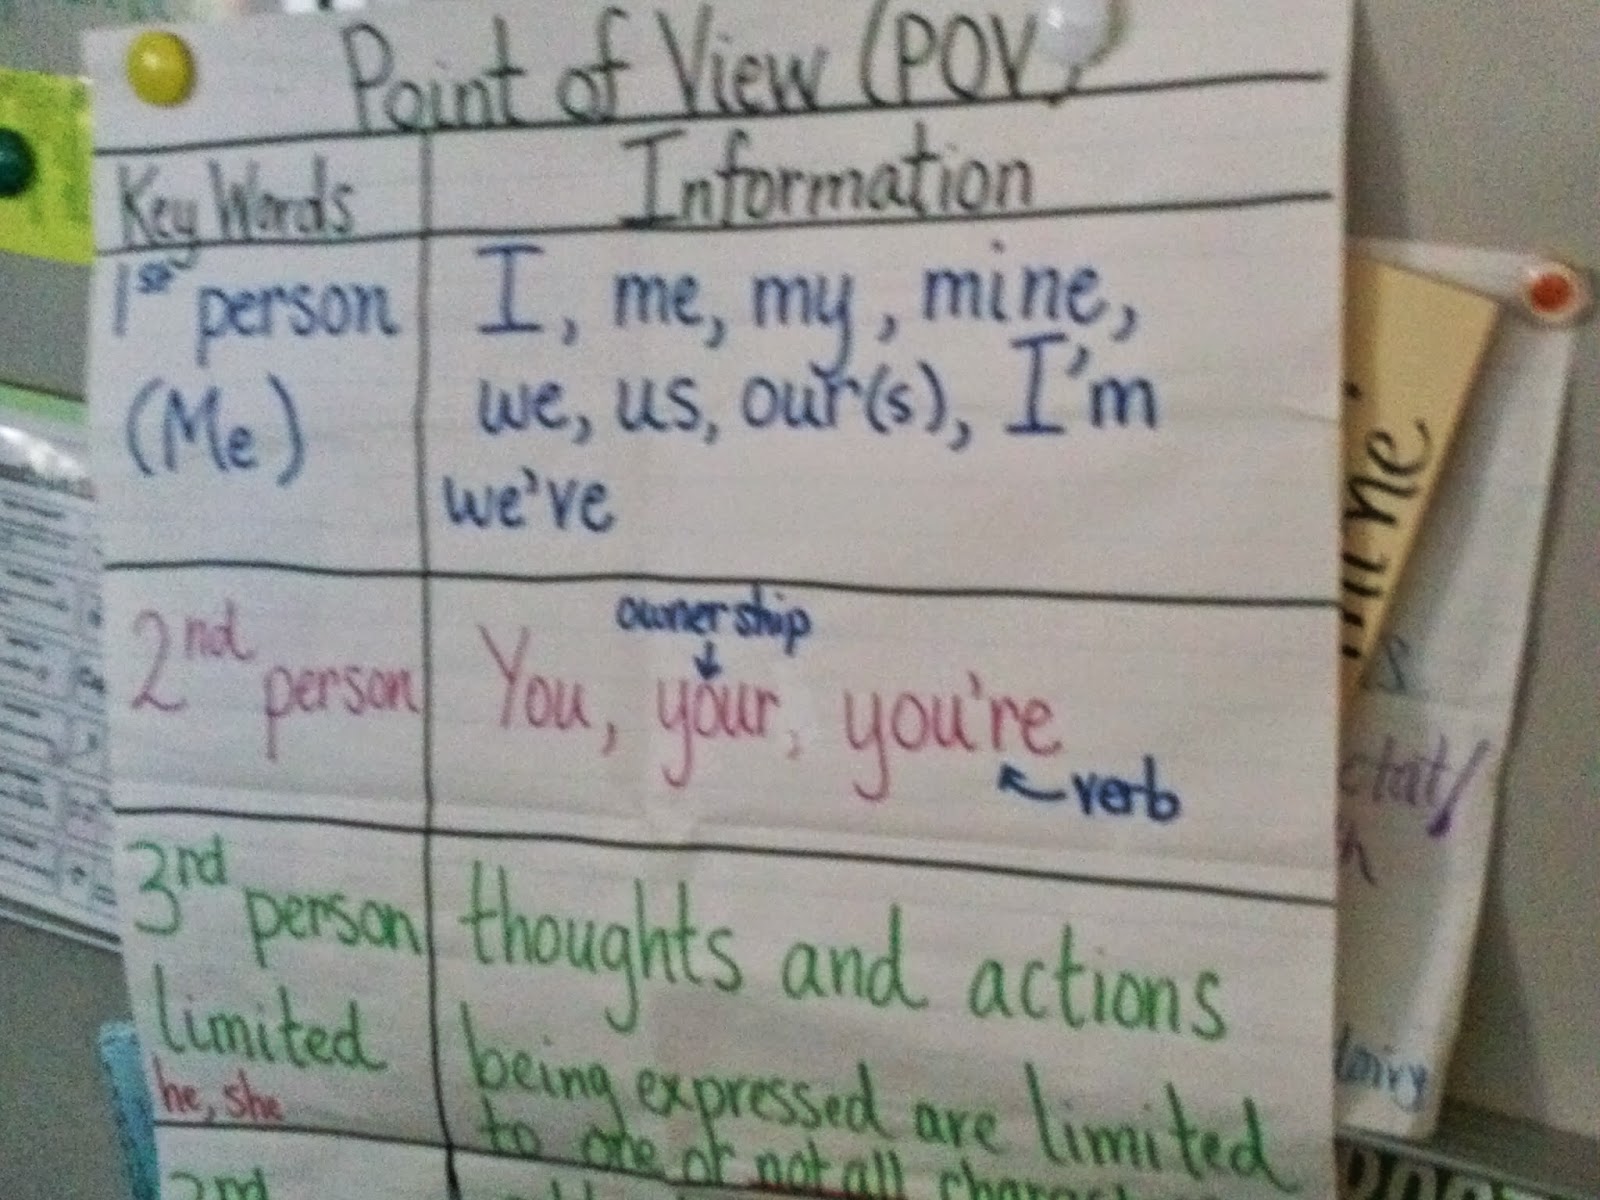 Point of View (POV)
Key Words
Information
1st person
(Me)
I, me, my, mine,
we, us, our(s), I'm
we've
2nd
person
ownership
You, your, you're
verb
3rd
person
limited
he, she
thoughts and actions
being expressed are limited
to one or not all